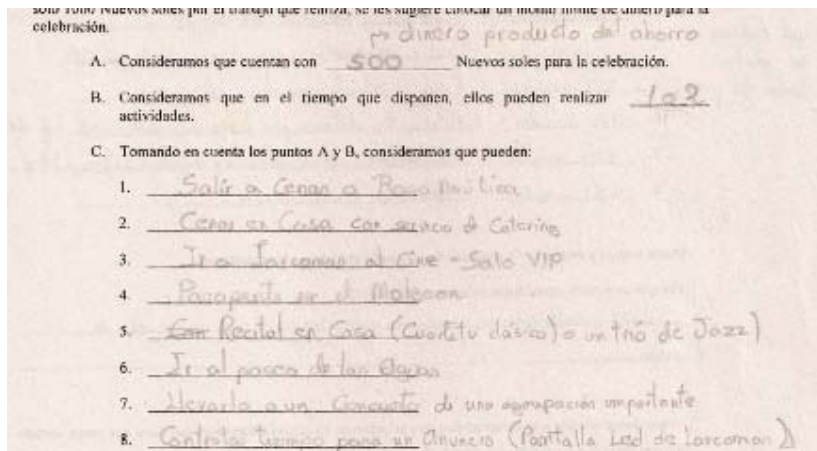 solo 1000 Nuevos soles por el trabajo que realiza, se les sugiere colocar un monto límite de dinero para la
celebración.
→ dinero producto del ahorro
A. Consideramos que cuentan con 500 Nuevos soles para la celebración.
B. Consideramos que en el tiempo que disponen, ellos pueden realizar 1 a 2
actividades.
C. Tomando en cuenta los puntos A y B, consideramos que pueden:
1. Salir a Cenar a Rosa Náutica
2. Cenar en Casa con servicio de Catering
3. Ir a Larcomar al Cine - Sala VIP
4. en el Malecon
5. Recital en Casa (Cuarteto clásico) o un trio de Jazz)
6. Ir al paseo de las Aguas
7. Llevarla a un Concierto de una agrupación importante
8. Contratar tiempo para un Anuncio (Pantalla Led de Larcomar)